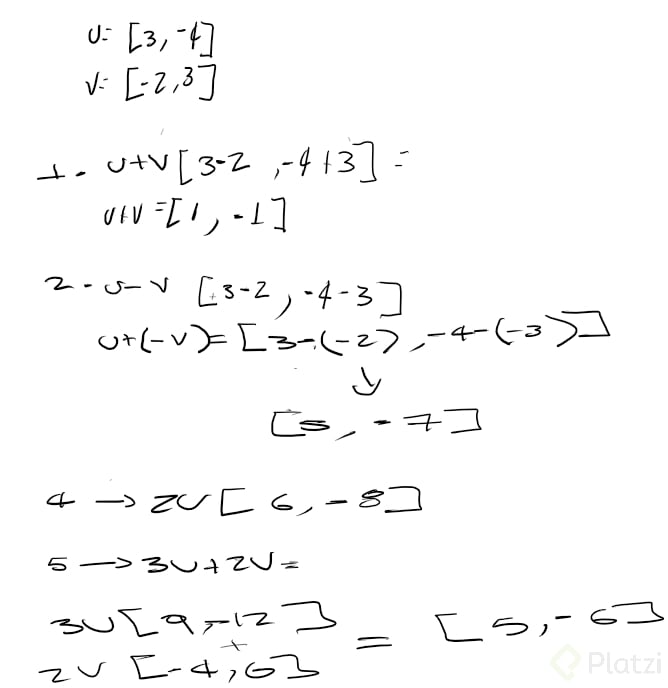 U= [3, -4]
V= [-2,3]
1. U+V [3-2 , -4+3] =
U+V =[1, -1]
2 - U-V [3-2, -4-3]
U+(-V)= [3-(-2), -4-(-3)]
↓
[5, -7]
4 → 2U [6, -8]
5 → 3U+2V=
3U[9,-12]
+
= [5,-6]
2V [-4,6]
Platzi